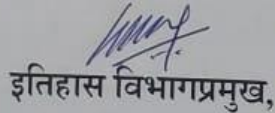 इतिहास विभागप्रमुख,